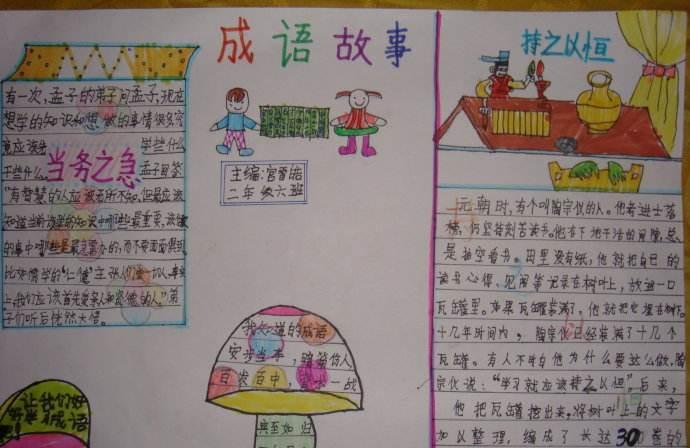 成语故事
持之以恒
有一次,孟子的弟子问孟子,现在
想学的知识和想做的事情很多,究
竟应该先 学些什么
干些什么。孟子回答
当务之急
"有智慧的人应该无所不知,但最应该
知道当前该学的知识中哪些最重要,该做
的事中哪些是最急需办的,而不要面面俱到。
上,我们应该首先爱亲人和贤德的人。"弟
子们听后恍然大悟。
主编:宫晋皓
二年级六班
元朝时,有个叫陶宗仪的人。他考进士落
榜,仍坚持刻苦读书。他在下地干活的间隙,总
是抽空看书。田里没有纸,他就把自己的
读书心得、见闻等记录在树叶上,放进一口
瓦罐里。如果瓦罐装满了,他就把它埋在树下。
十几年时间内,陶宗仪已经装满了十几个
瓦罐。有人不明白他为什么要这么做,陶
宗仪说:"学习就应该持之以恒",后来,
他把瓦罐挖出来,将树叶上的文字
加以整理,编成了长达30卷的
我知道的成语
安步当车,
百发百中,
让我们好
好来
成语